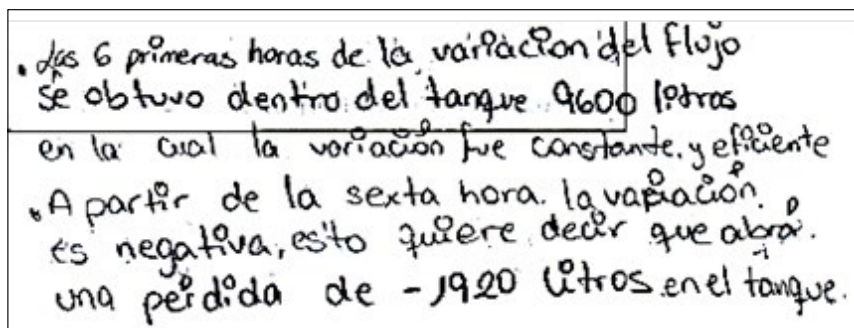 . Las 6 primeras horas de la variacion del flujo
se obtuvo dentro del tanque 9600 litros
en la cual la variación fue constante. y eficiente
. A partir de la sexta hora. la variación.
es negativa, esto quiere decir que abrá.
una perdida de -1920 litros en el tanque.